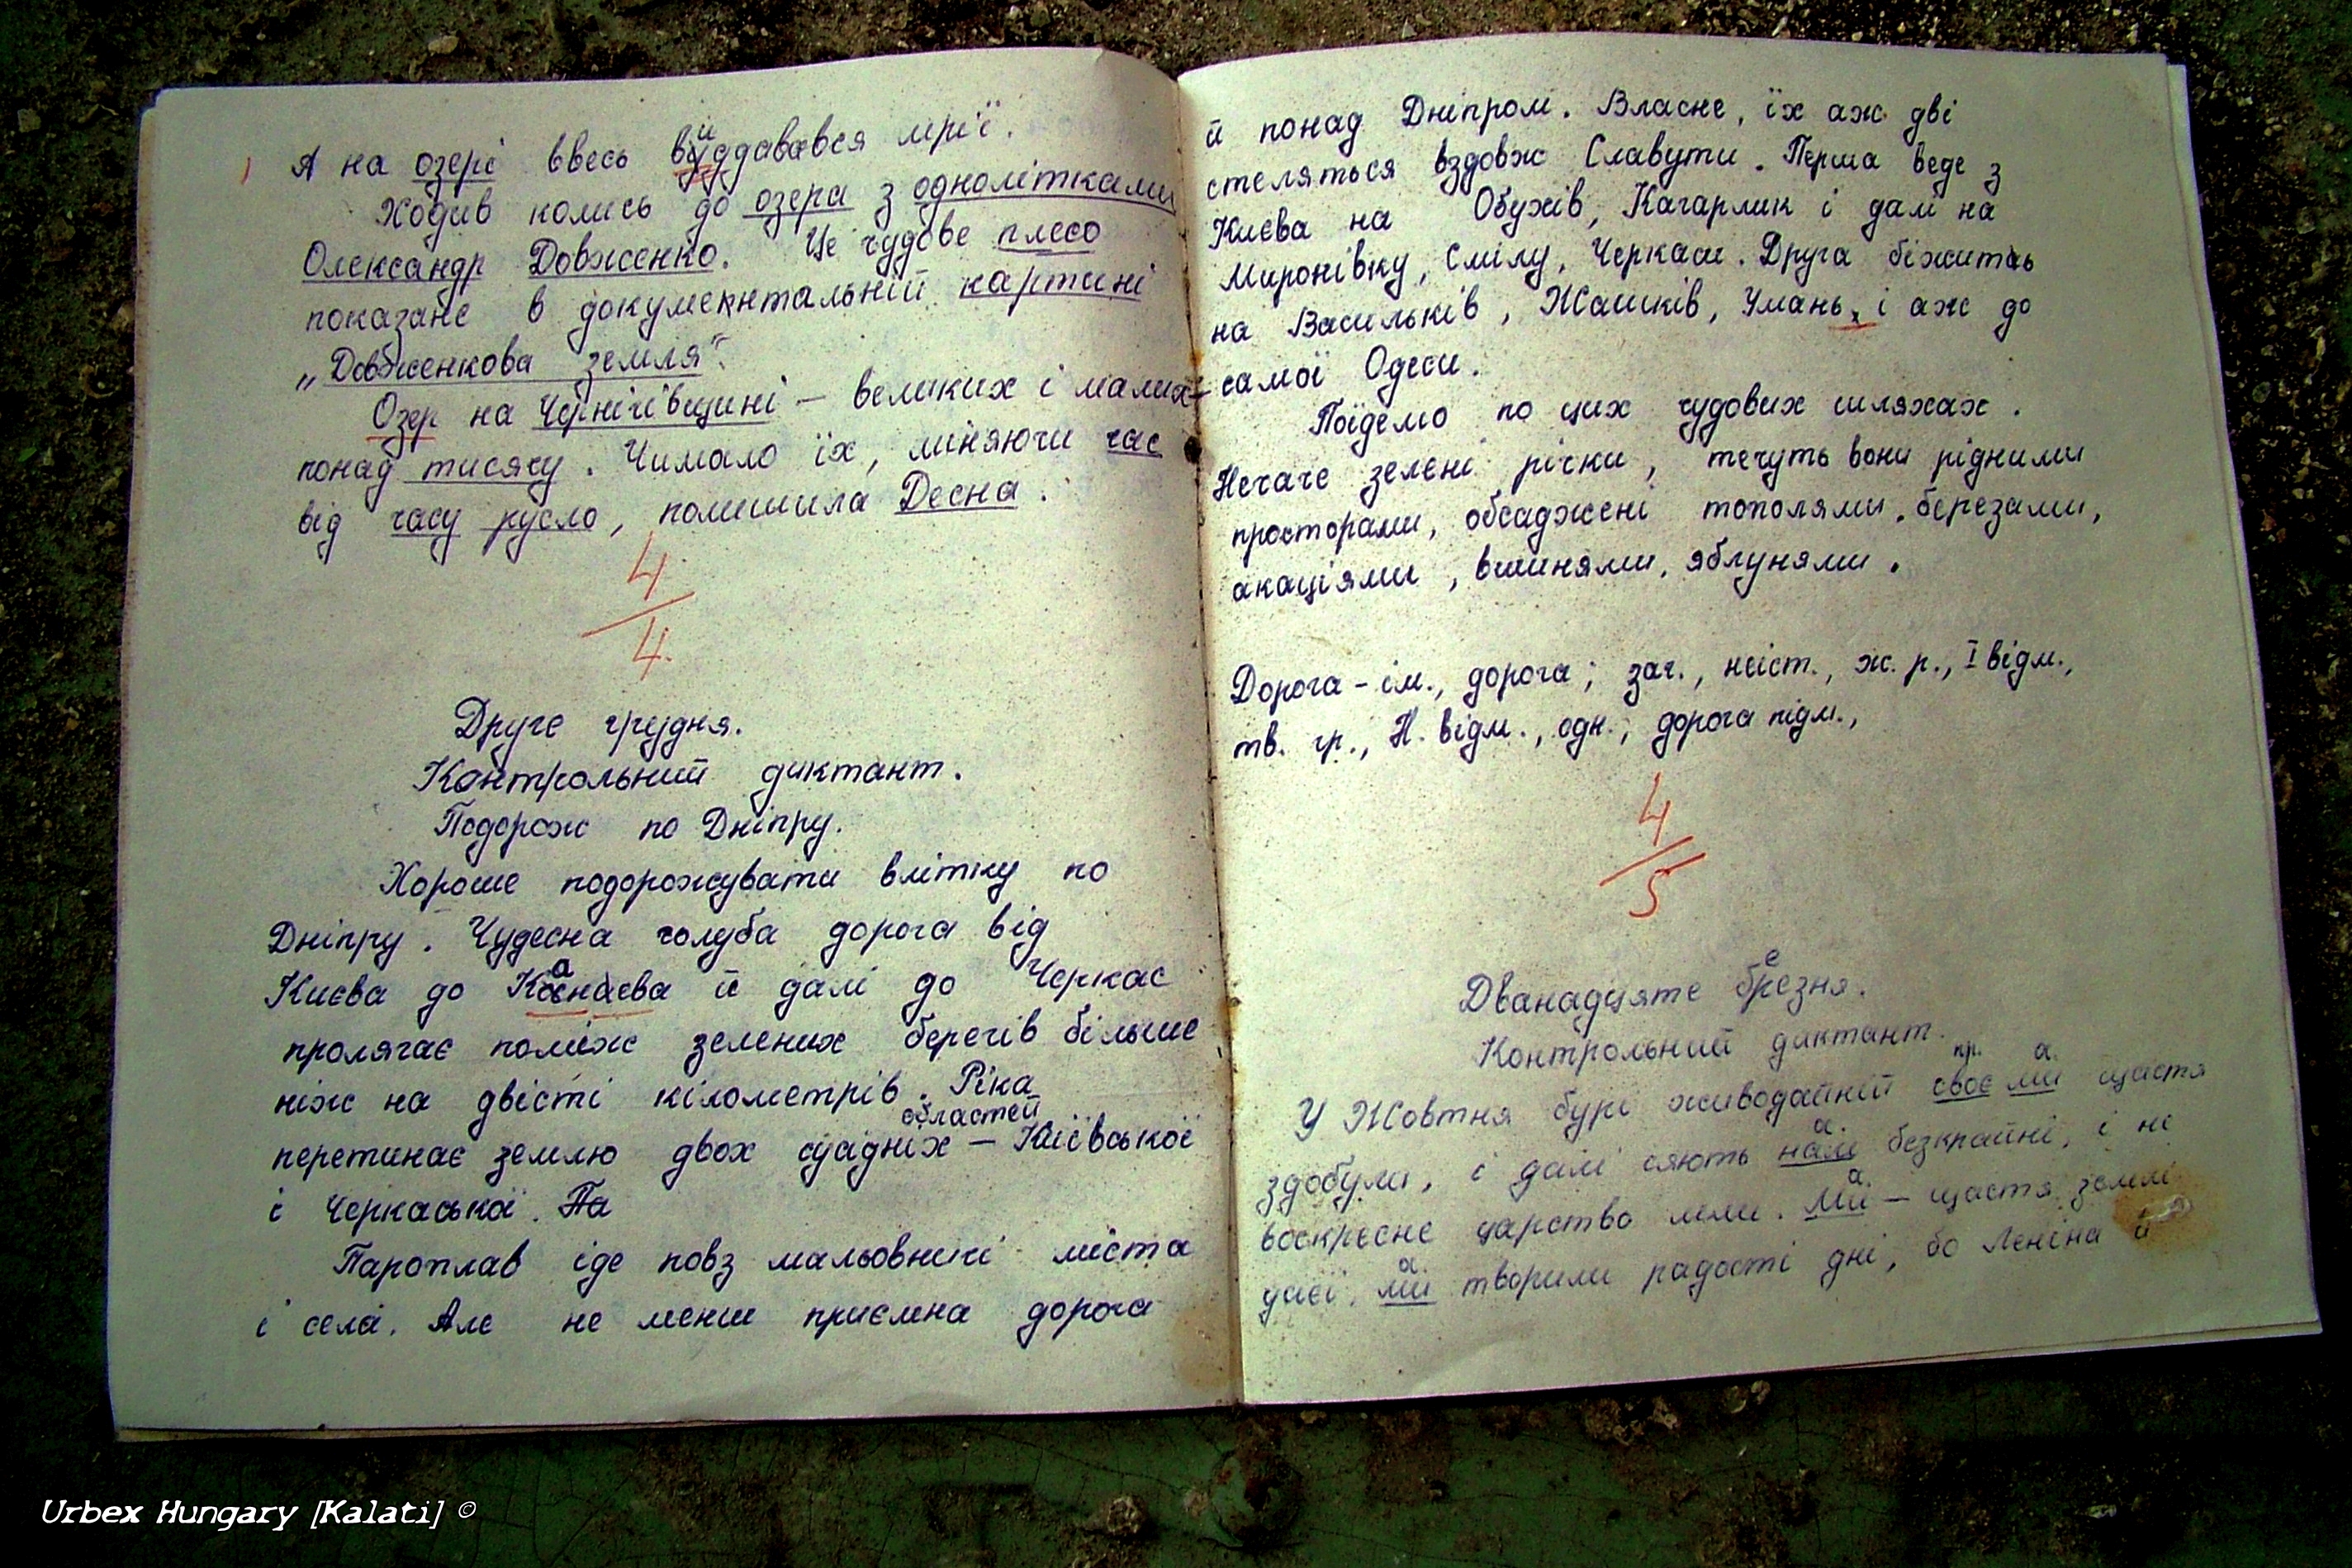 А на озері ввесь виддавався мрії.
Ходив колись до озера з однолітками
Олександр Довженко. Це чудове плесо
показане в документальній картині
„Довженкова земля".
Озер на Чернігівщині — великих і малих —
понад тисячу. Чимало їх, міняючи час
від часу русло, полишила Десна.
4
4
Друге грудня.
Контрольний диктант.
Подорож по Дніпру.
Хороше подорожувати влітку по
Дніпру. Чудесна голуба дорога від
Києва до Канаєва й далі до Черкас
пролягає поміж зелених берегів більше
ніж на двісті кілометрів. Ріка
областей
перетинає землю двох сусідніх — Київської
і Черкаської. Па
Пароплав іде повз мальовничі міста
і села. Але не менш приємна дорога
й понад Дніпром. Власне, їх аж дві
стеляться вздовж Славути. Перша веде з
Києва на Обухів, Кагарлик і далі на
Миронівку, Смілу, Черкаси. Друга біжить
на Васильків, Жашків, Умань, і аж до
самої Одеси.
Поїдемо по цих чудових шляхах.
Неначе зелені річки, течуть вони рідними
просторами, обсаджені тополями, березами,
акаціями, вишнями, яблунями.
Дорога - ім., дорога; заг., неіст., ж. р., I відм.,
тв. гр., Н. відм., одн., дорога підм.,
4
5
Дванадцяте березня.
Контрольний диктант.
пр. а.
У Жовтня бурі живодайній своє ми щастя
а.
здобули, і далі сяють нам безкрайні, і не
а.
воскресне царство тьми. Ми — щастя землі
а.
даєі. ми творили радості дні, бо Леніна й
Urbex Hungary [Kalati] ©